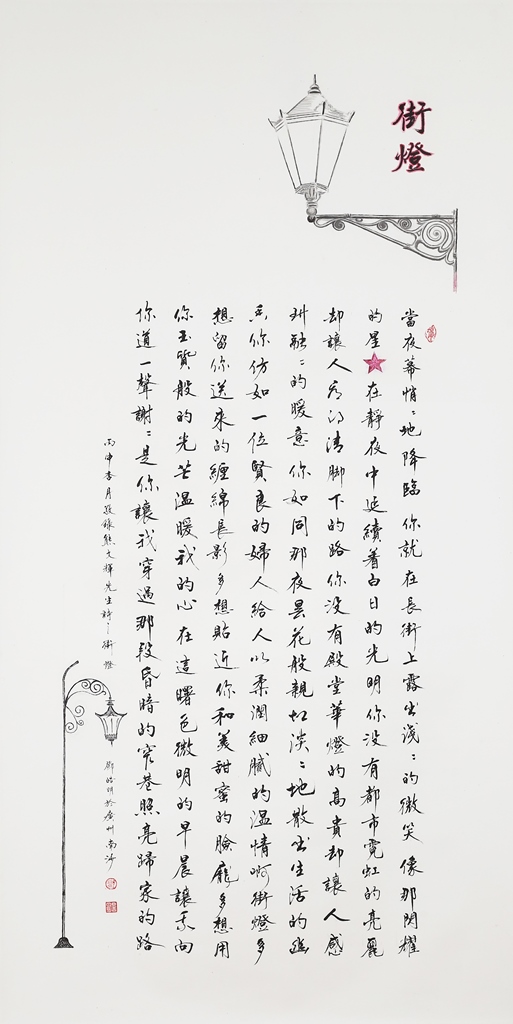 街燈
當夜幕悄〻地降臨你就在長街上露出淺〻的微笑像那閃耀
的星在靜夜中延續着白日的光明你沒有都市霓虹的亮麗
却讓人看得清脚下的路你沒有殿堂華燈的高貴却讓人感
融〻的暖意你如同那夜曇花般親切淡〻地散出生活的幽
香你仿如一位賢良的婦人給人以柔潤細膩的溫情啊街燈多
想留你送來的纏綿長影多想貼近你和美甜蜜的臉龐多想用
你玉質般的光芒溫暖我的心在這曙色微明的早晨讓我向
你道一聲謝〻是你讓我穿過那段昏暗的窄巷照亮歸家的路
丙申杏月敬錄熊文輝先生詩之街燈
於廣州